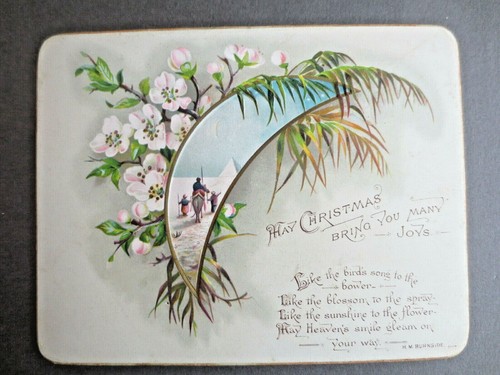 May Christmas
bring you many
Joys
Like the birds song to the
bower
Like the blossom to the spray
Like the sunshine to the flower
May Heaven's smile gleam on
your way.
H. M. BURNSIDE